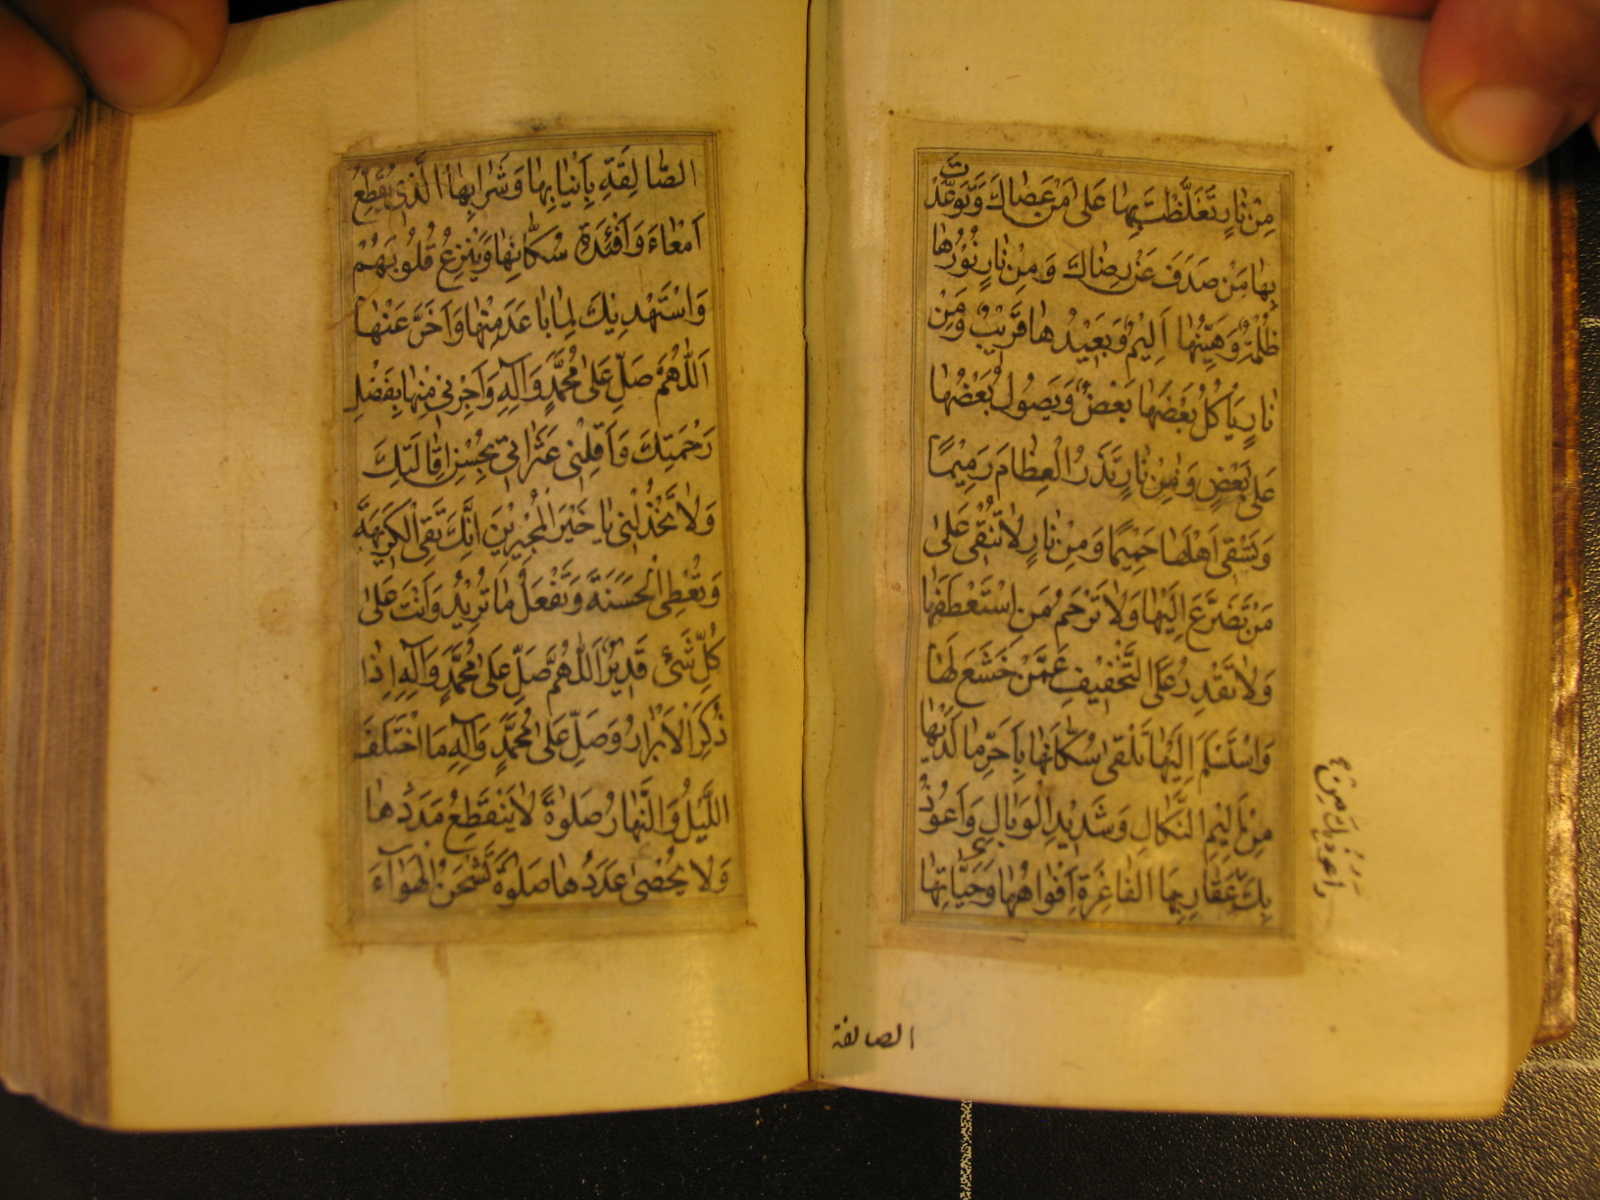 مِنْ نَارٍ تَغَلَّظْتَ بِهَا عَلَىٰ مَنْ عَصَاكَ وَتَوَعَّدْتَ
بِهَا مَنْ صَدَفَ عَنْ رِضَاكَ وَمِنْ نَارٍ نُورُهَا
ظُلْمَةٌ وَهَيِّنُهَا اَلِيمٌ وَبَعِيدُهَا قَرِيبٌ وَمِنْ
نَارٍ يَاْكُلُ بَعْضَهَا بَعْضٌ وَيَصُولُ بَعْضُهَا
عَلىٰ بَعْضٍ وَمِنْ نَارٍ تَذَرُ الْعِظَامَ رَمِيمًا
وَتَسْقِي اَهْلَهَا حَمِيمًا وَمِنْ نَارٍ لَا تُبْقِي عَلىٰ
مَنْ تَضَرَّعَ اِلَيْهَا وَلَا تَرْحَمُ مَنِ اسْتَعْطَفَهَا
وَلَا تَقْدِرُ عَلَى التَّخْفِيفِ عَمَّنْ خَشَعَ لَهَا
وَاسْتَسْلَمَ اِلَيْهَا تَلْقىٰ سُكَّانَهَا بِاَحَرِّ مَا لَدَيْهَا
مِنْ اَلِيمِ النَّكَالِ وَشَدِيدِ الْوَبَالِ وَاَعُوذُ
بِكَ عَقَارِبِهَا الْفَاغِرَةِ اَفْوَاهُهَا وَحَيَّاتِهَا
واعوذ بك من
الصالقة
الصَّالِقَةِ بِاَنْيَابِهَا وَشَرَابِهَا الَّذِي يُقَطِّعُ
اَمْعَاءَ وَاَفْئِدَةَ سُكَّانِهَا وَيَنْزِعُ قُلُوبَهُمْ
وَاَسْتَهْدِيكَ لِمَا بَاعَدَ مِنْهَا وَاَخَّرَ عَنْهَا
اَللّٰهُمَّ صَلِّ عَلىٰ مُحَمَّدٍ وَآلِهِ وَاَجِرْنِي مِنْهَا بِفَضْلِ
رَحْمَتِكَ وَاَقِلْنِي عَثَرَاتِي بِحُسْنِ اِقَالَتِكَ
وَلَا تَخْذُلْنِي يَا خَيْرَ الْمُجِيرِينَ اِنَّكَ تَقِي الْكَرِيهَةَ
وَتُعْطِي الْحَسَنَةَ وَتَفْعَلُ مَا تُرِيدُ وَاَنْتَ عَلىٰ
كُلِّ شَيْءٍ قَدِيرٌ اَللّٰهُمَّ صَلِّ عَلىٰ مُحَمَّدٍ وَآلِهِ اِذَا
ذُكِرَ الْاَبْرَارُ وَصَلِّ عَلىٰ مُحَمَّدٍ وَآلِهِ مَا اخْتَلَفَ
اللَّيْلُ وَالنَّهَارُ صَلوٰةً لَا يَنْقَطِعُ مَدَدُهَا
وَلَا يُحْصىٰ عَدَدُهَا صَلوٰةً تَشْحَنُ الْهَوَاءَ